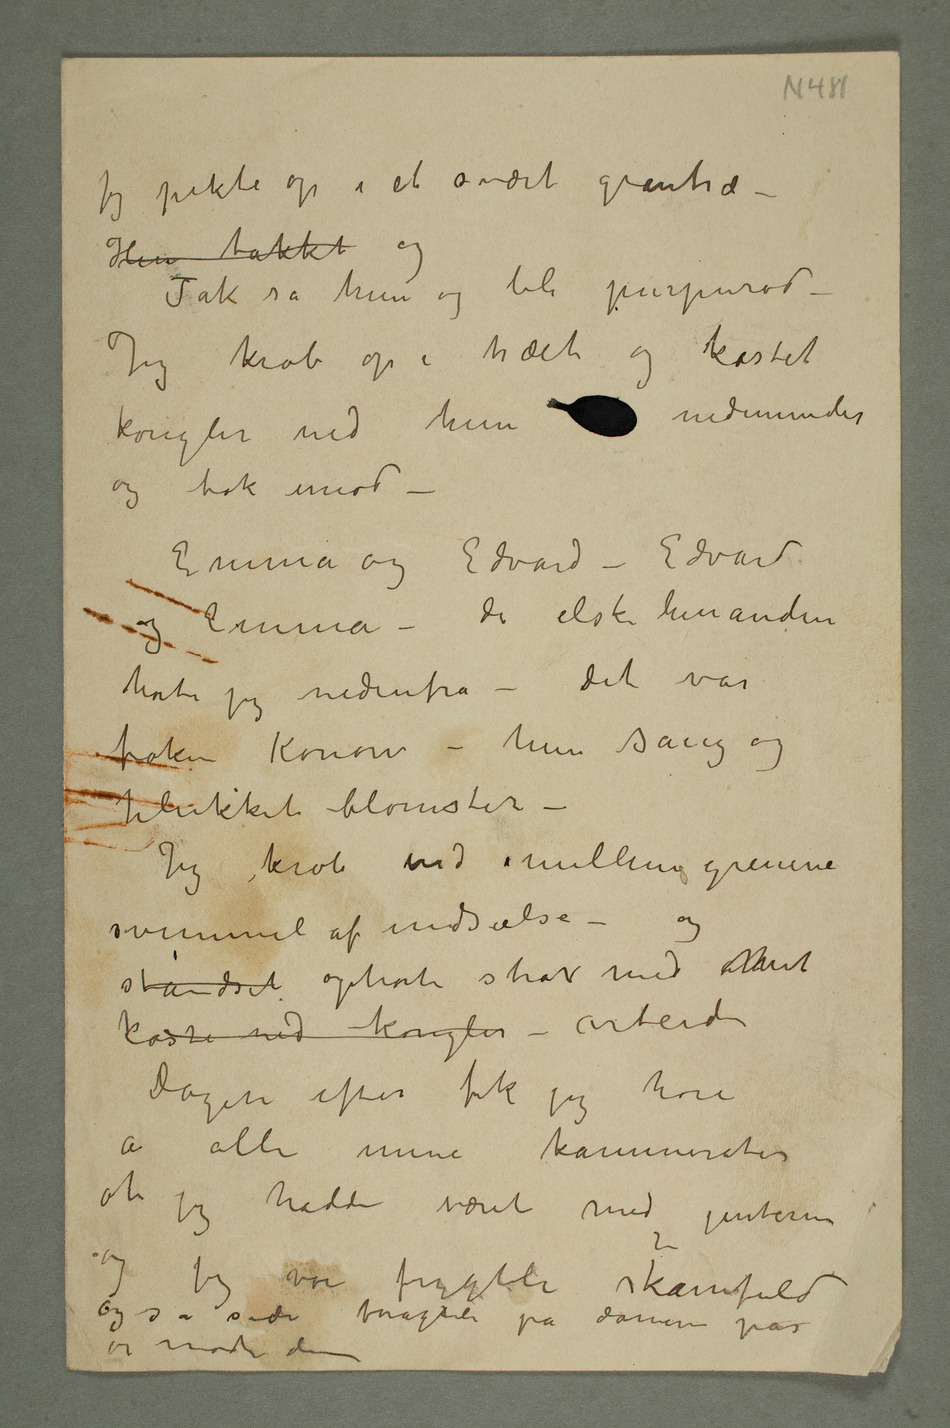 N 481
Jeg pekte op i et svært grantræ –
Hun takket og
Tak sa hun og ble purpurød –
Jeg krøb op i træet og kastet
kongler ned hun nedenunder
og tok imod –
Emma og Edvard – Edvard
og Emma – de elske hinanden
hørte jeg nedenfra – det var
frøken Konow – hun sang og
plukket blomster –
Jeg krøb ned imellem grenene
svimmel af undseelse – og
standset ophørte strax med
kaste ned kongler – arbeide
Dagen efter fik jeg høre
a alle mine kammerater
at jeg hadde været med jenterne
og jeg var frygtelig skamfuld
og så siden foragtelig på damene når
jeg mødte dem